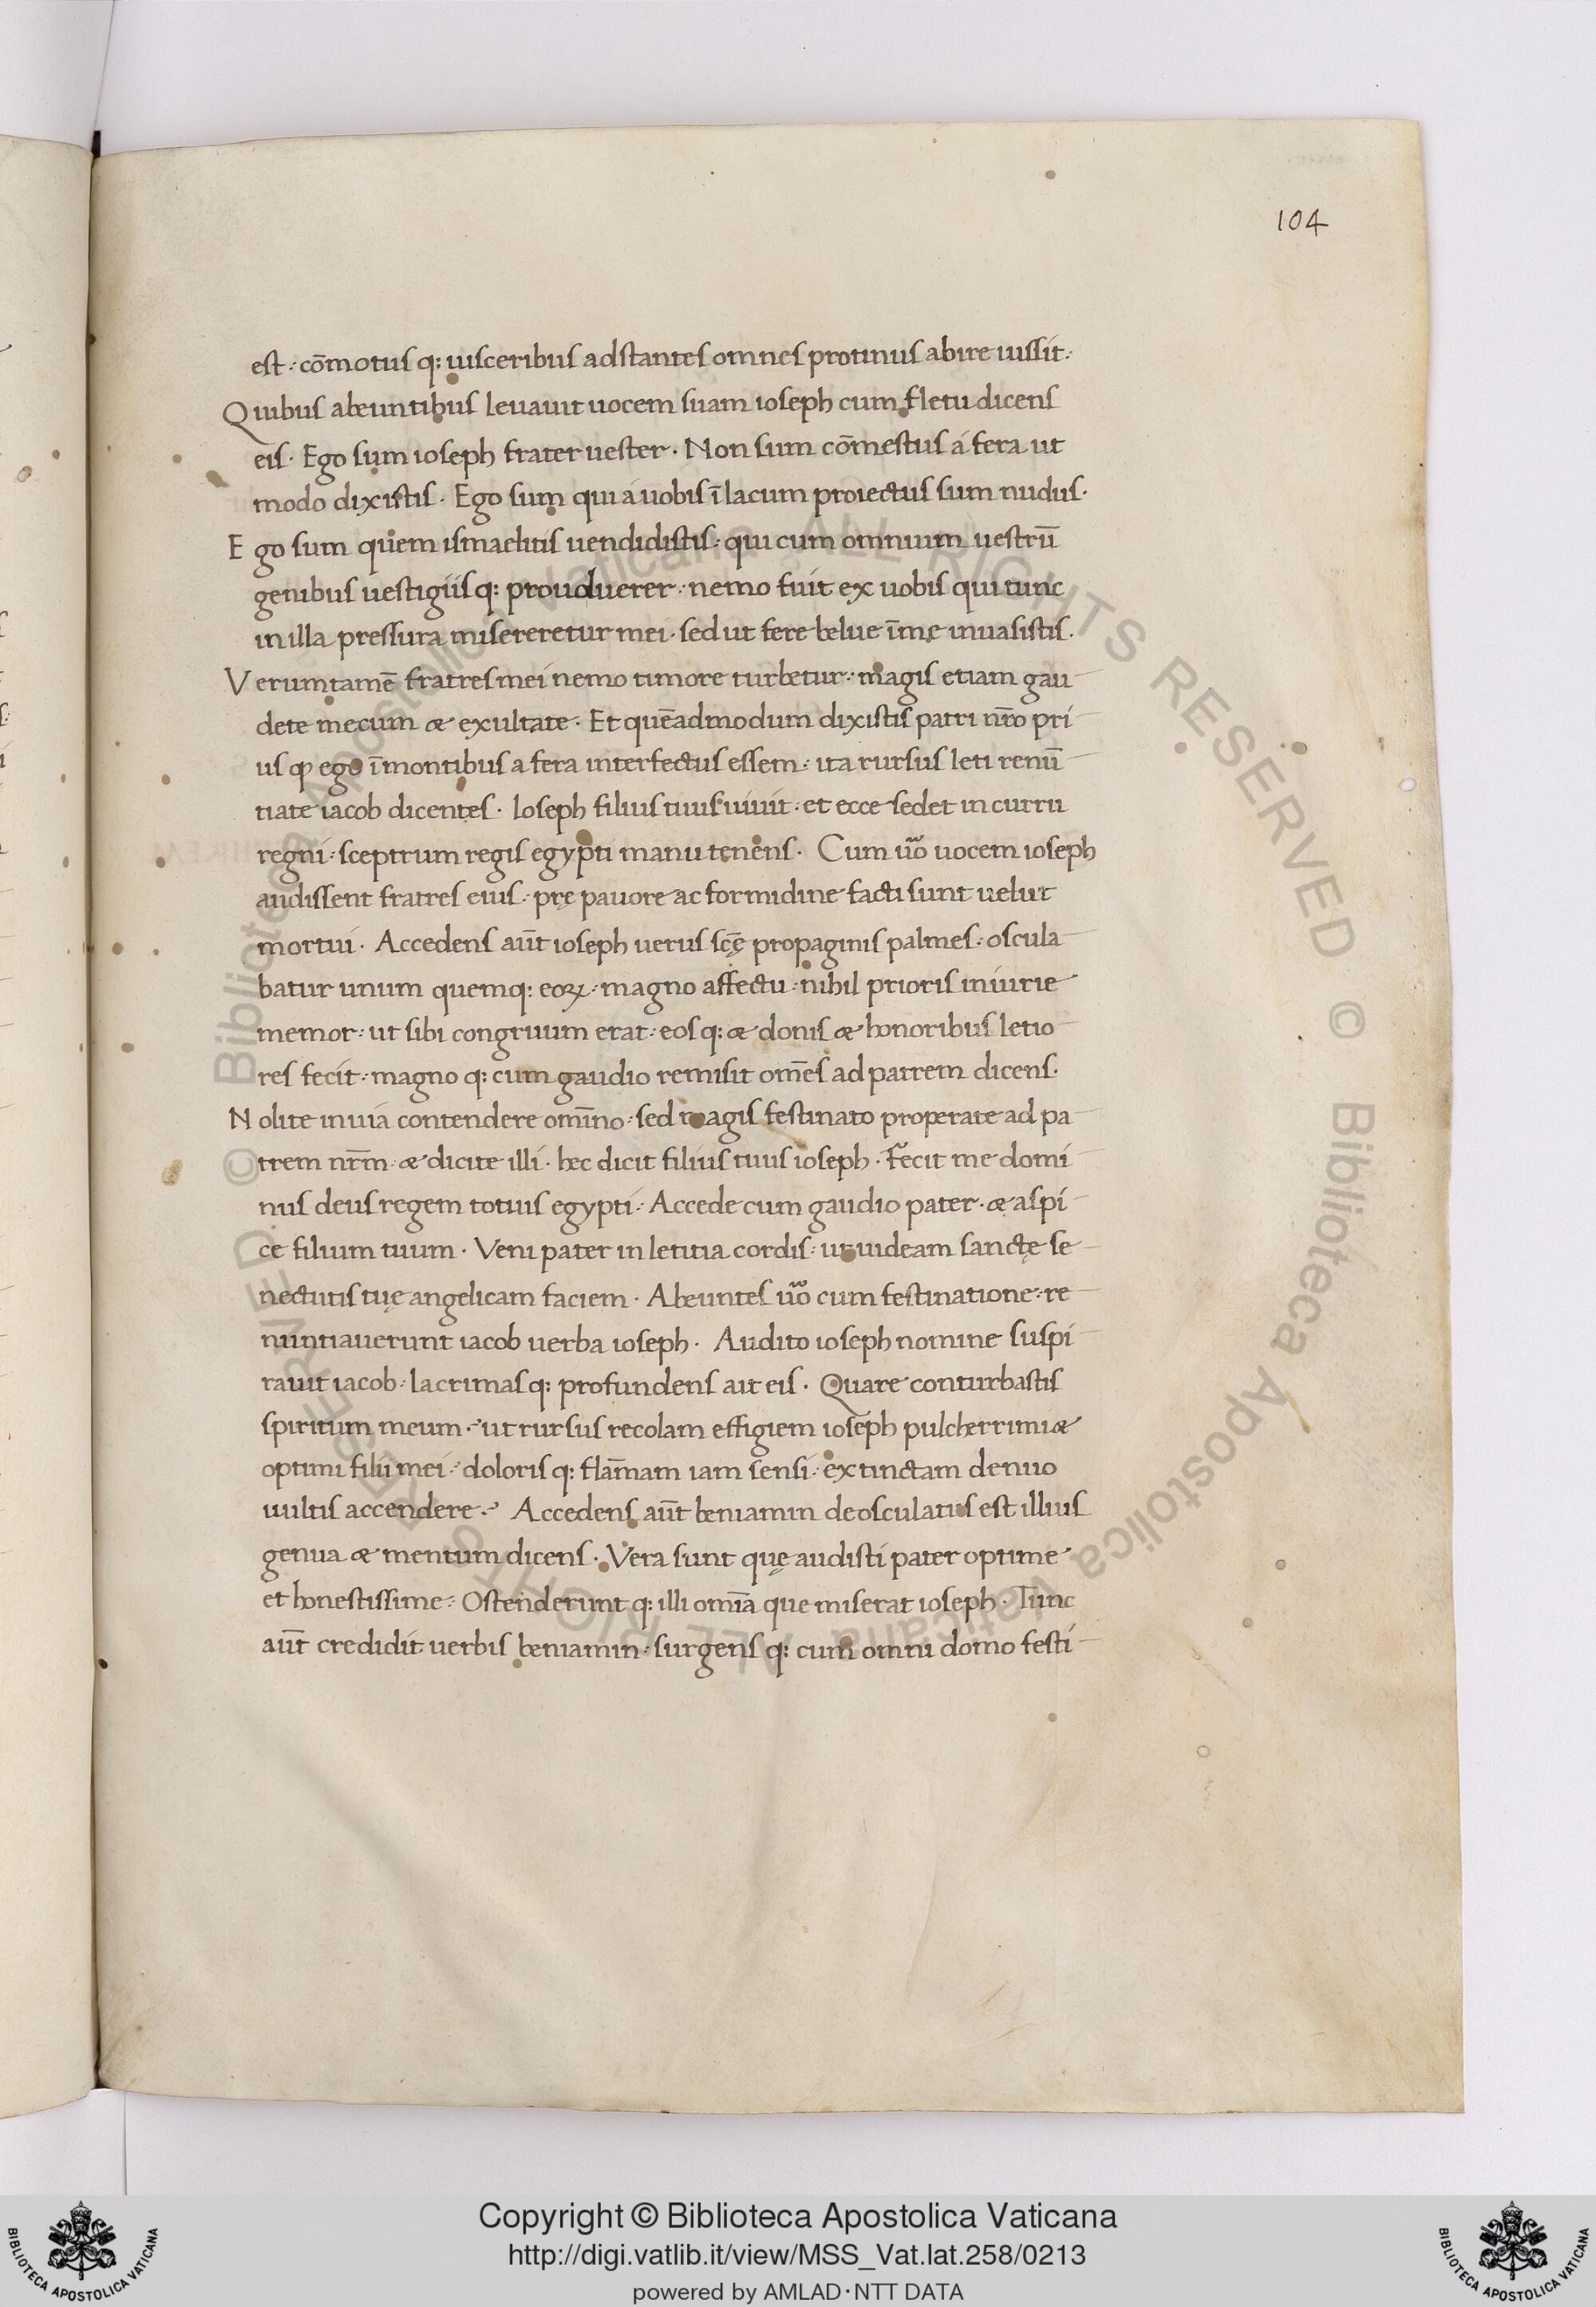 104
est : cōmotus q: uisceribus adstantes omnes protinus abire iussit :
Quibus abeuntibus leuauit uocem suam ioseph cum fletu dicens
eis · Ego sum ioseph frater uester · Non sum cōmestus á fera ut
modo dixistis · Ego sum qui á uobis ī lacum proiectus sum nudus ·
Ego sum quem ismaelitis uendidistis : qui cum omnium uestrū
genibus uestigiisq: prouoluerer : nemo fuit ex uobis qui tunc
in illa pressura misereretur mei · sed ut fere belue ī me inuasistis ·
Verumtamē fratres mei nemo timore turbetur : magis etiam gau
dete mecum æ exultate · Et quēadmodum dixistis patri nr̄o pri
us ꝙ ego ī montibus a fera interfectus essem : ita rursus leti renū
tiate iacob dicentes · Ioseph filius tuus uiuit : et ecce sedet in curru
regni : sceptrum regis egypti manu tenens · Cum ūo uocem ioseph
audissent fratres eius : prę pauore ac formidine facti sunt uelut
mortui · Accedens aūt ioseph uerus scę̄ propaginis palmes : oscula
batur unum quemq: eoꝝ : magno affectu : nihil prioris iniurie
memor : ut sibi congruum erat : eosq: æ donis æ honoribus letio
res fecit : magno q: cum gaudio remisit om̄es ad patrem dicens ·
Nolite in uia contendere om̄ino : sed magis festinato properate ad pa
trem nr̄m · æ dicite illi · hec dicit filius tuus ioseph · Fecit me domi
nus deus regem totius egypti : Accede cum gaudio pater · æ aspi
ce filium tuum · Veni pater in letitia cordis : ut uideam sanctę se
nectutis tuę angelicam faciem · Abeuntes ūo cum festinatione : re
nuntiauerunt iacob uerba ioseph · Audito ioseph nomine suspi
rauit iacob : lacrimasq: profundens ait eis · Quare conturbastis
spiritum meum · ut rursus recolam effigiem ioseph pulcherrimi æ
optimi filii mei · dolorisq: flām̄am iam sensi : extinctam denuo
uultis accendere · Accedens aūt beniamin deosculatus est illius
genua æ mentum dicens · Vera sunt quę audisti pater optime
et honestissime : Ostenderunt q: illi om̄ia que miserat ioseph · Tunc
aūt credidit uerbis beniamin : surgens q: cum omni domo festi
© Biblioteca Apostolica Vaticana ALL RIGHTS RESERVED © Biblioteca Apostolica Vaticana ALL RIGHTS RESERVED
Copyright © Biblioteca Apostolica Vaticana
http://digi.vatlib.it/view/MSS_Vat.lat.258/0213
powered by AMLAD·NTT DATA
BIBLIOTECA APOSTOLICA VATICANA
BIBLIOTECA APOSTOLICA VATICANA